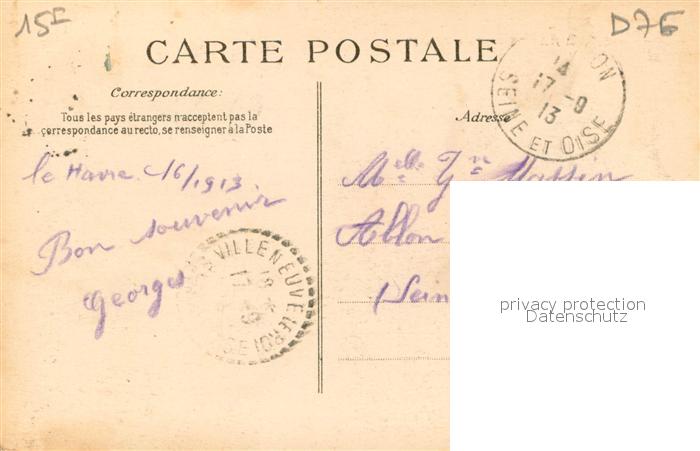 15E
D76
CARTE POSTALE
Correspondance:
Tous les pays étrangers n'acceptent pas la
correspondance au recto, se renseigner à la Poste
Adresse
14
17-9
13
SEINE ET OISE
le Havre 16/1913.
Bon souvenir
Georges
VILLENEUVE LE ROI
Melle
Ablon
Sein
privacy protection
Datenschutz